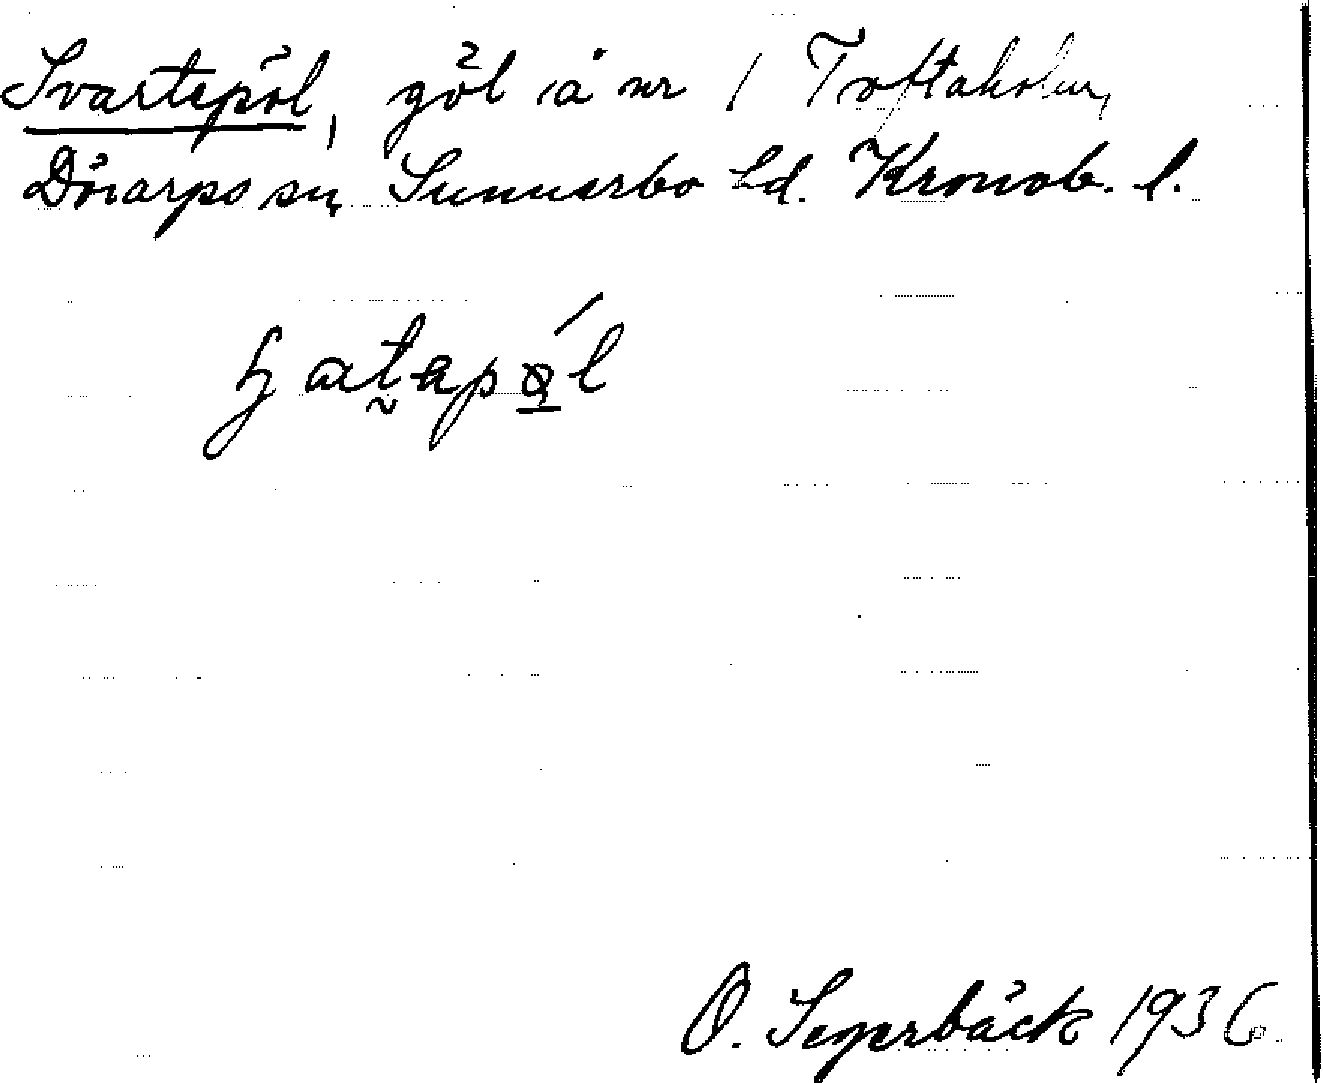 Svartepöl, göl å nr 1 Toftaholm,
Dörarps sn, Sunnerbo hd. Kronob. l.
O. Segerbäck 1936.